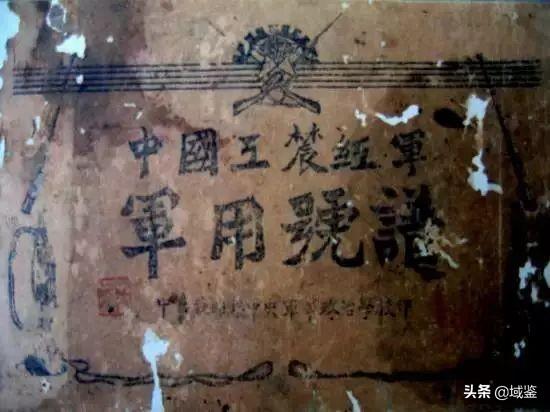 中國工農紅軍
軍用號譜
中央軍事政治學校印
头条 @域鉴